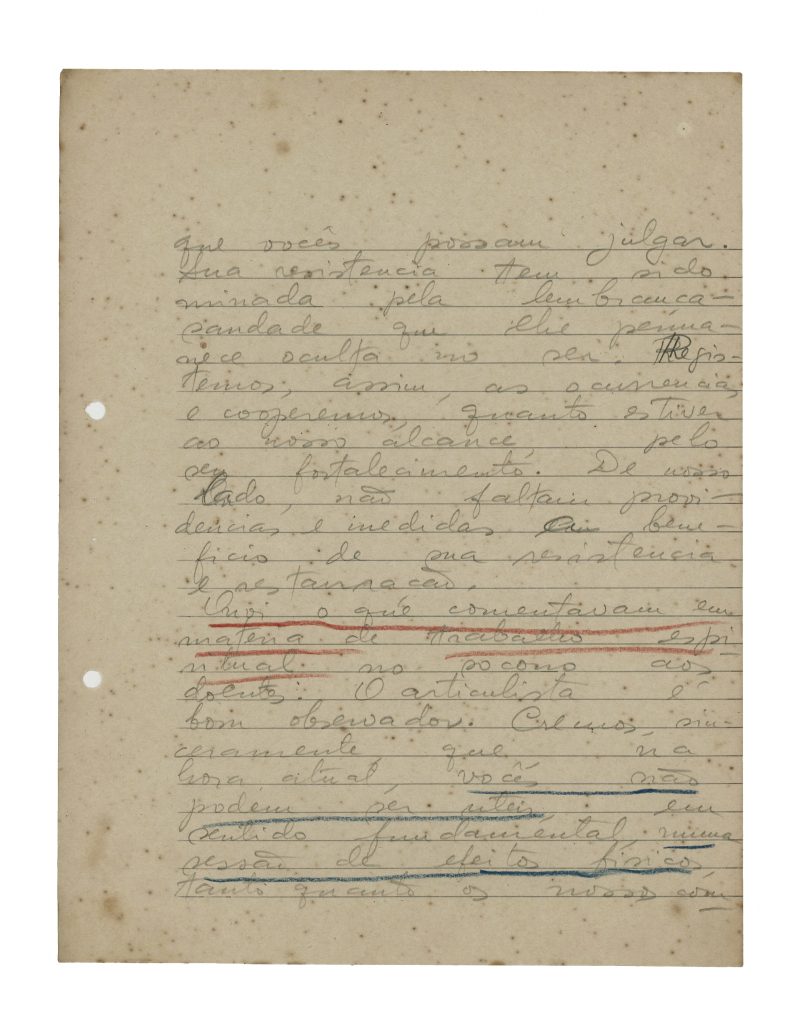 que vocês possam julgar.
Sua resistencia tem sido
minada pela lembrança-
saudade que lhe perma-
nece oculta no ser. Regis-
temos, assim, as ocurrencias
e cooperemos, quanto estiver
ao nosso alcance, pelo
seu fortalecimento. De nosso
lado, não faltam provi-
dencias e medidas em bene-
ficio de sua resistencia
e restauração.
Ouvi o que comentavam em
materia de trabalho espi
ritual no socorro aos
doentes. O articulista é
bom observador. Cremos, sin-
ceramente, que na
hora atual, vocês não
podem ser uteis, em
sentido fundamental, numa
sessão de efeitos fisicos,
tanto quanto os nossos com